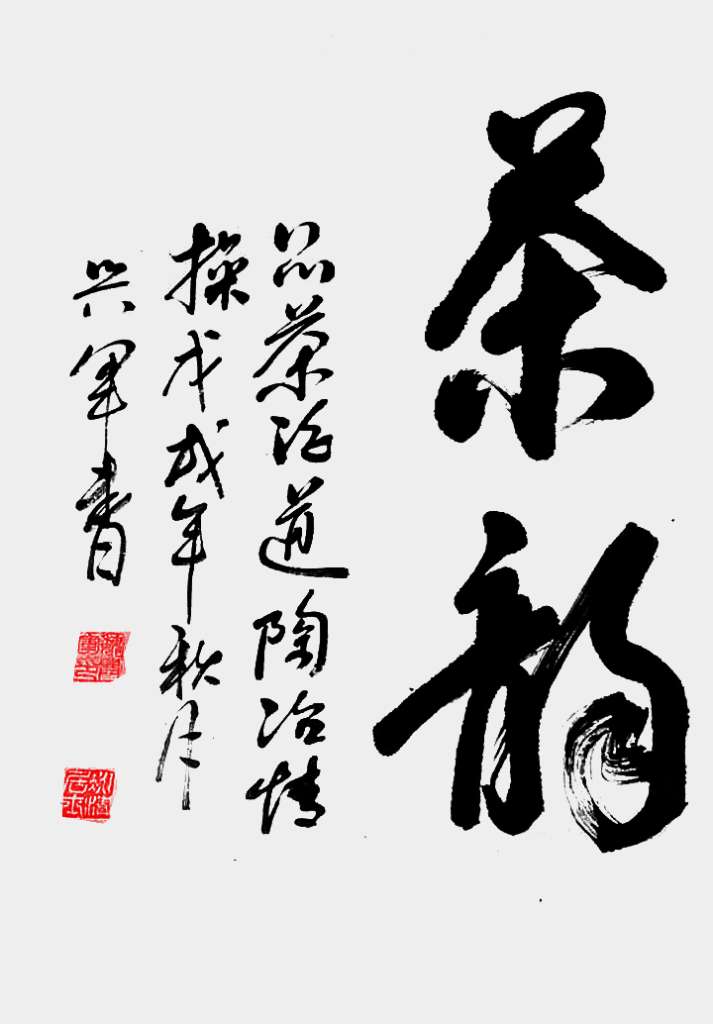 茶韵
品茶论道陶冶情
操戊戌年秋月
兴军书